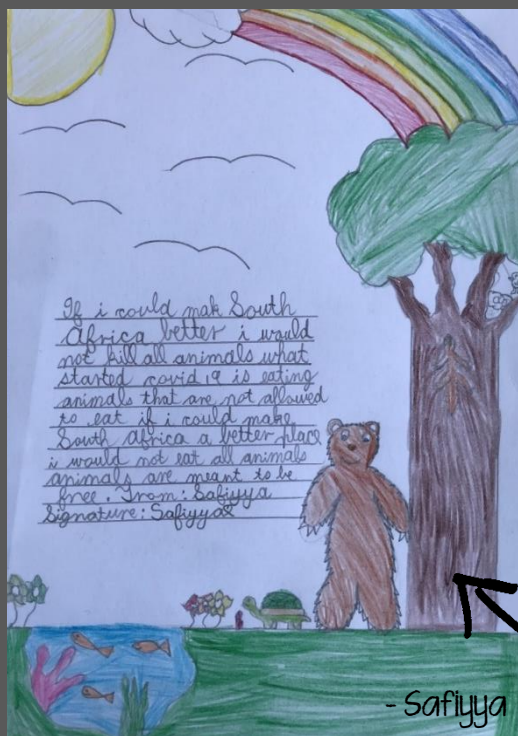 If i could mak South
Africa better i would
not kill all animals what
started covid 19 is eating
animals that are not allowed
to eat if i could make
South Africa a better place
i would not eat all animals
animals are meant to be
free. From: Safiyya
Signature: Safiyya
- Safiyya